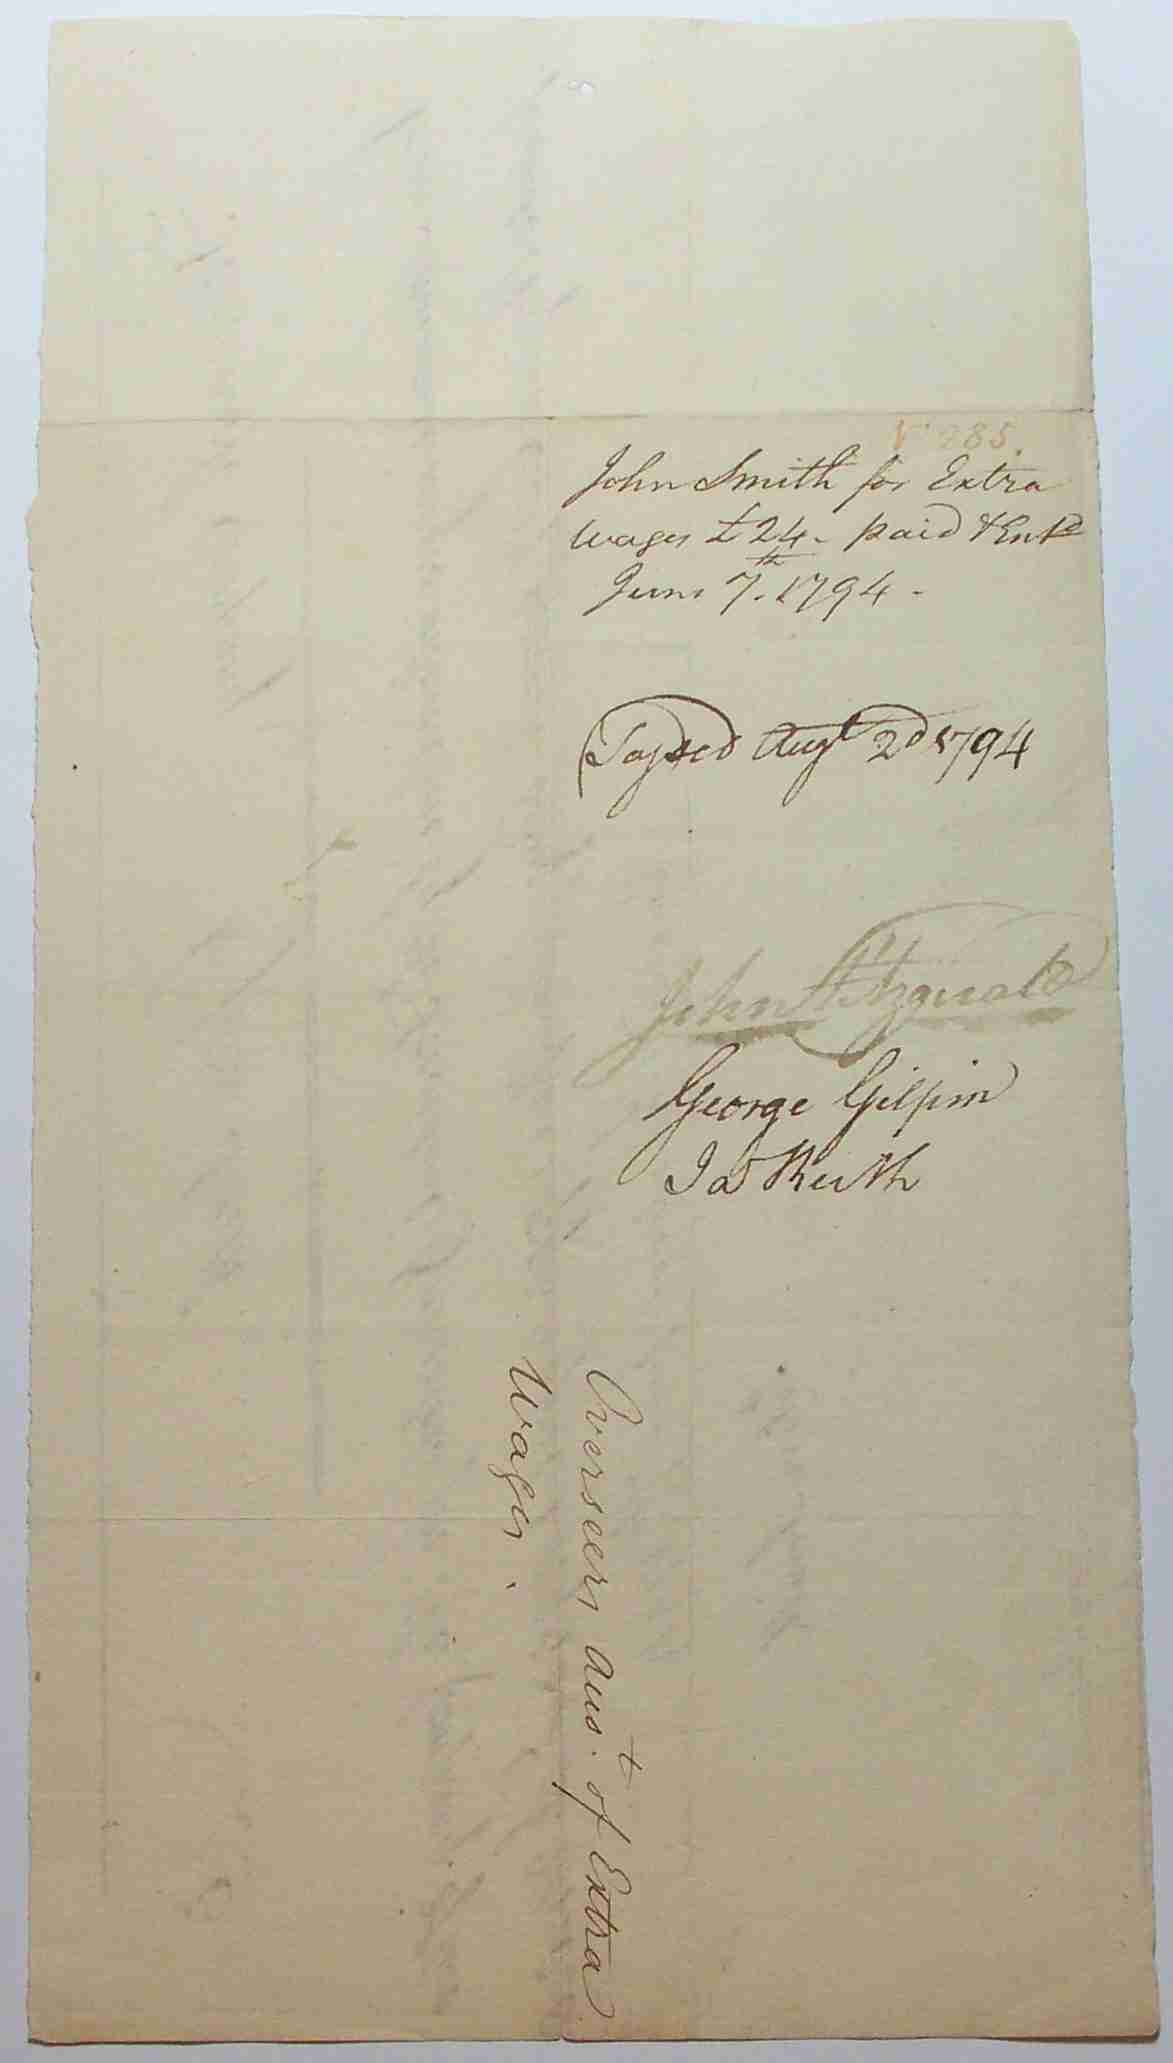 N 285.
John Smith for Extra
wages £24 - paid & Entd
June 7th. 1794 -
Passed Augt 2d 1794
John Fitzgerald
George Gilpin
Jas Keith
Overseers acct. of Extra
Wages.